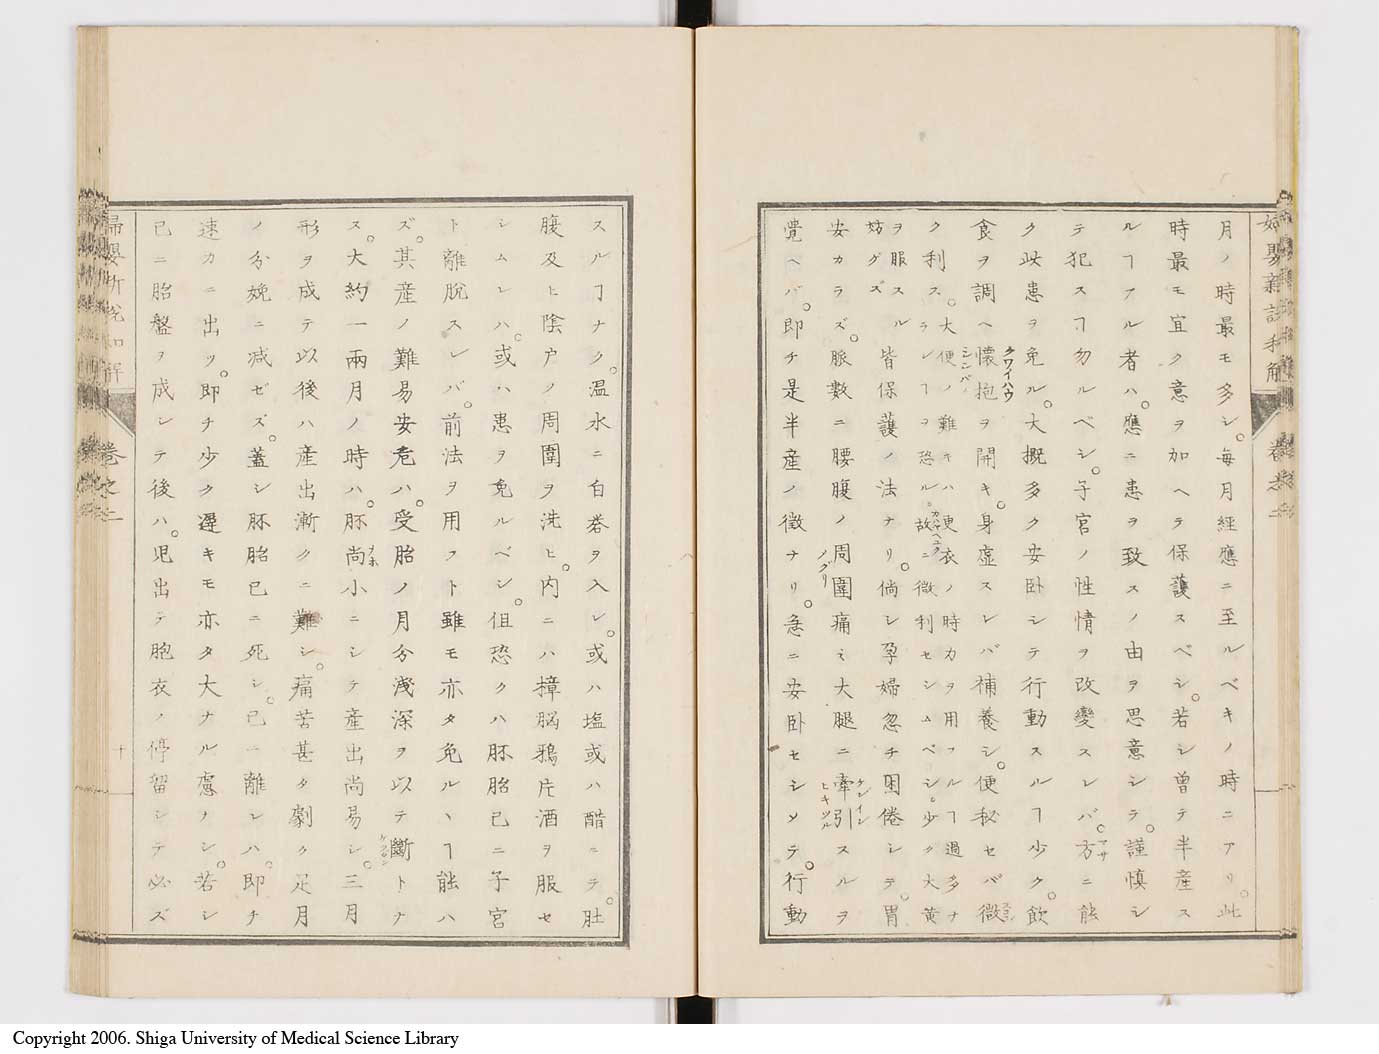 月ノ時最モ多シ。毎月經應ニ至ルベキノ時ニアリ。此
時最モ宜ク意ヲ加ヘテ保護スベシ。若シ曽テ半産ス
ルヿアル者ハ。應ニ患ヲ致スノ由ヲ思意シテ。謹慎シ
テ犯スヿ勿ルベシ。子宮ノ性情ヲ改變スレバ。方ニ能
マサ
ク此患ヲ免ル。大概多ク安卧シテ行動スルヿ少ク。飲
食ヲ調ヘ懷抱ヲ開キ。身虚スレバ補養シ。便秘セバ微
クワイハウ
スコシ
ク利ス。大便ノ難キハ更衣ノ時力ヲ用フルヿ過多ナ
ラレヿヲ恐ル。故ニ微利セシムベシ。少ク大黄
シンバ
カヤヘユク
ヲ服スル皆保護ノ法ナリ。倘シ孕婦忽チ困倦シテ。胃
姑グズ
安カラズ。脈數ニ腰腹ノ周圍痛ミ大腿ニ牽引スルヲ
ノグリ
ケンイン
ヒキツル
覺ヘバ。即チ是半産ノ徴ナリ。急ニ安卧セシメテ。行動
婦嬰新説和解
卷之二
スルヿナク。温水ニ白礬ヲ入レ。或ハ塩或ハ醋ニテ。肚
腹及ヒ陰户ノ周圍ヲ洗ヒ。内ニハ樟脳鴉片酒ヲ服セ
シムレハ。或ハ患ヲ免ルベシ。但恐クハ胚胎已ニ子宮
ト離脱スレバ。前法ヲ用フト雖モ亦タ免ルヽヿ能ハ
ズ。其産ノ難易安危ハ。受胎ノ月分浅深ヲ以テ斷トナ
ス。大約一兩月ノ時ハ。胚尚小ニシテ産出尚易シ。三月
ナホ
形ヲ成テ以後ハ産出漸クニ難シ。痛苦甚タ劇ク足月
ノ分娩ニ减ゼズ。蓋シ胚胎已ニ死シ。已ニ離レハ。即チ
速カニ出ツ。即チ少ク遲キモ亦タ大ナル慮ノシ。若シ
已ニ胎盤ヲ成シテ後ハ。児出テ胞衣ノ停留シテ必ズ
婦嬰新説和解
卷之二
十
Copyright 2006. Shiga University of Medical Science Library